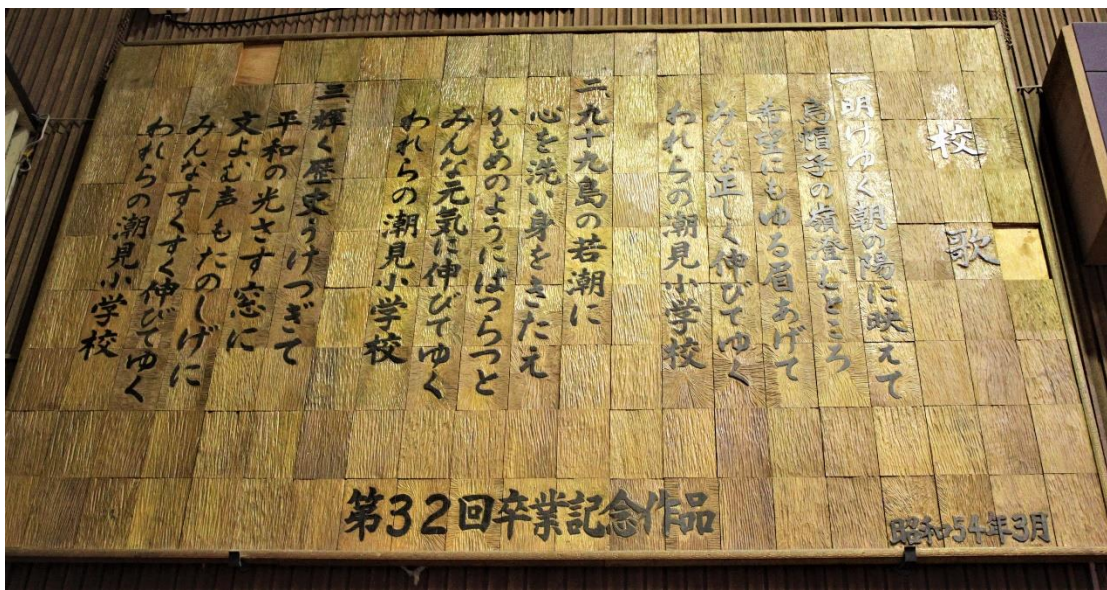 校歌
一、明けゆく朝の陽に映えて
烏帽子の嶺澄むところ
希望にもゆる眉あげて
みんな正しく伸びてゆく
われらの潮見小学校
二、九十九島の若潮に
心を洗い身をきたえ
かもめのようにはつらつと
みんな元気に伸びてゆく
われらの潮見小学校
三、輝く歴史うけつぎて
平和の光さす窓に
文よむ声もたのしげに
みんなすくすく伸びてゆく
われらの潮見小学校
第32回卒業記念作品
昭和54年3月